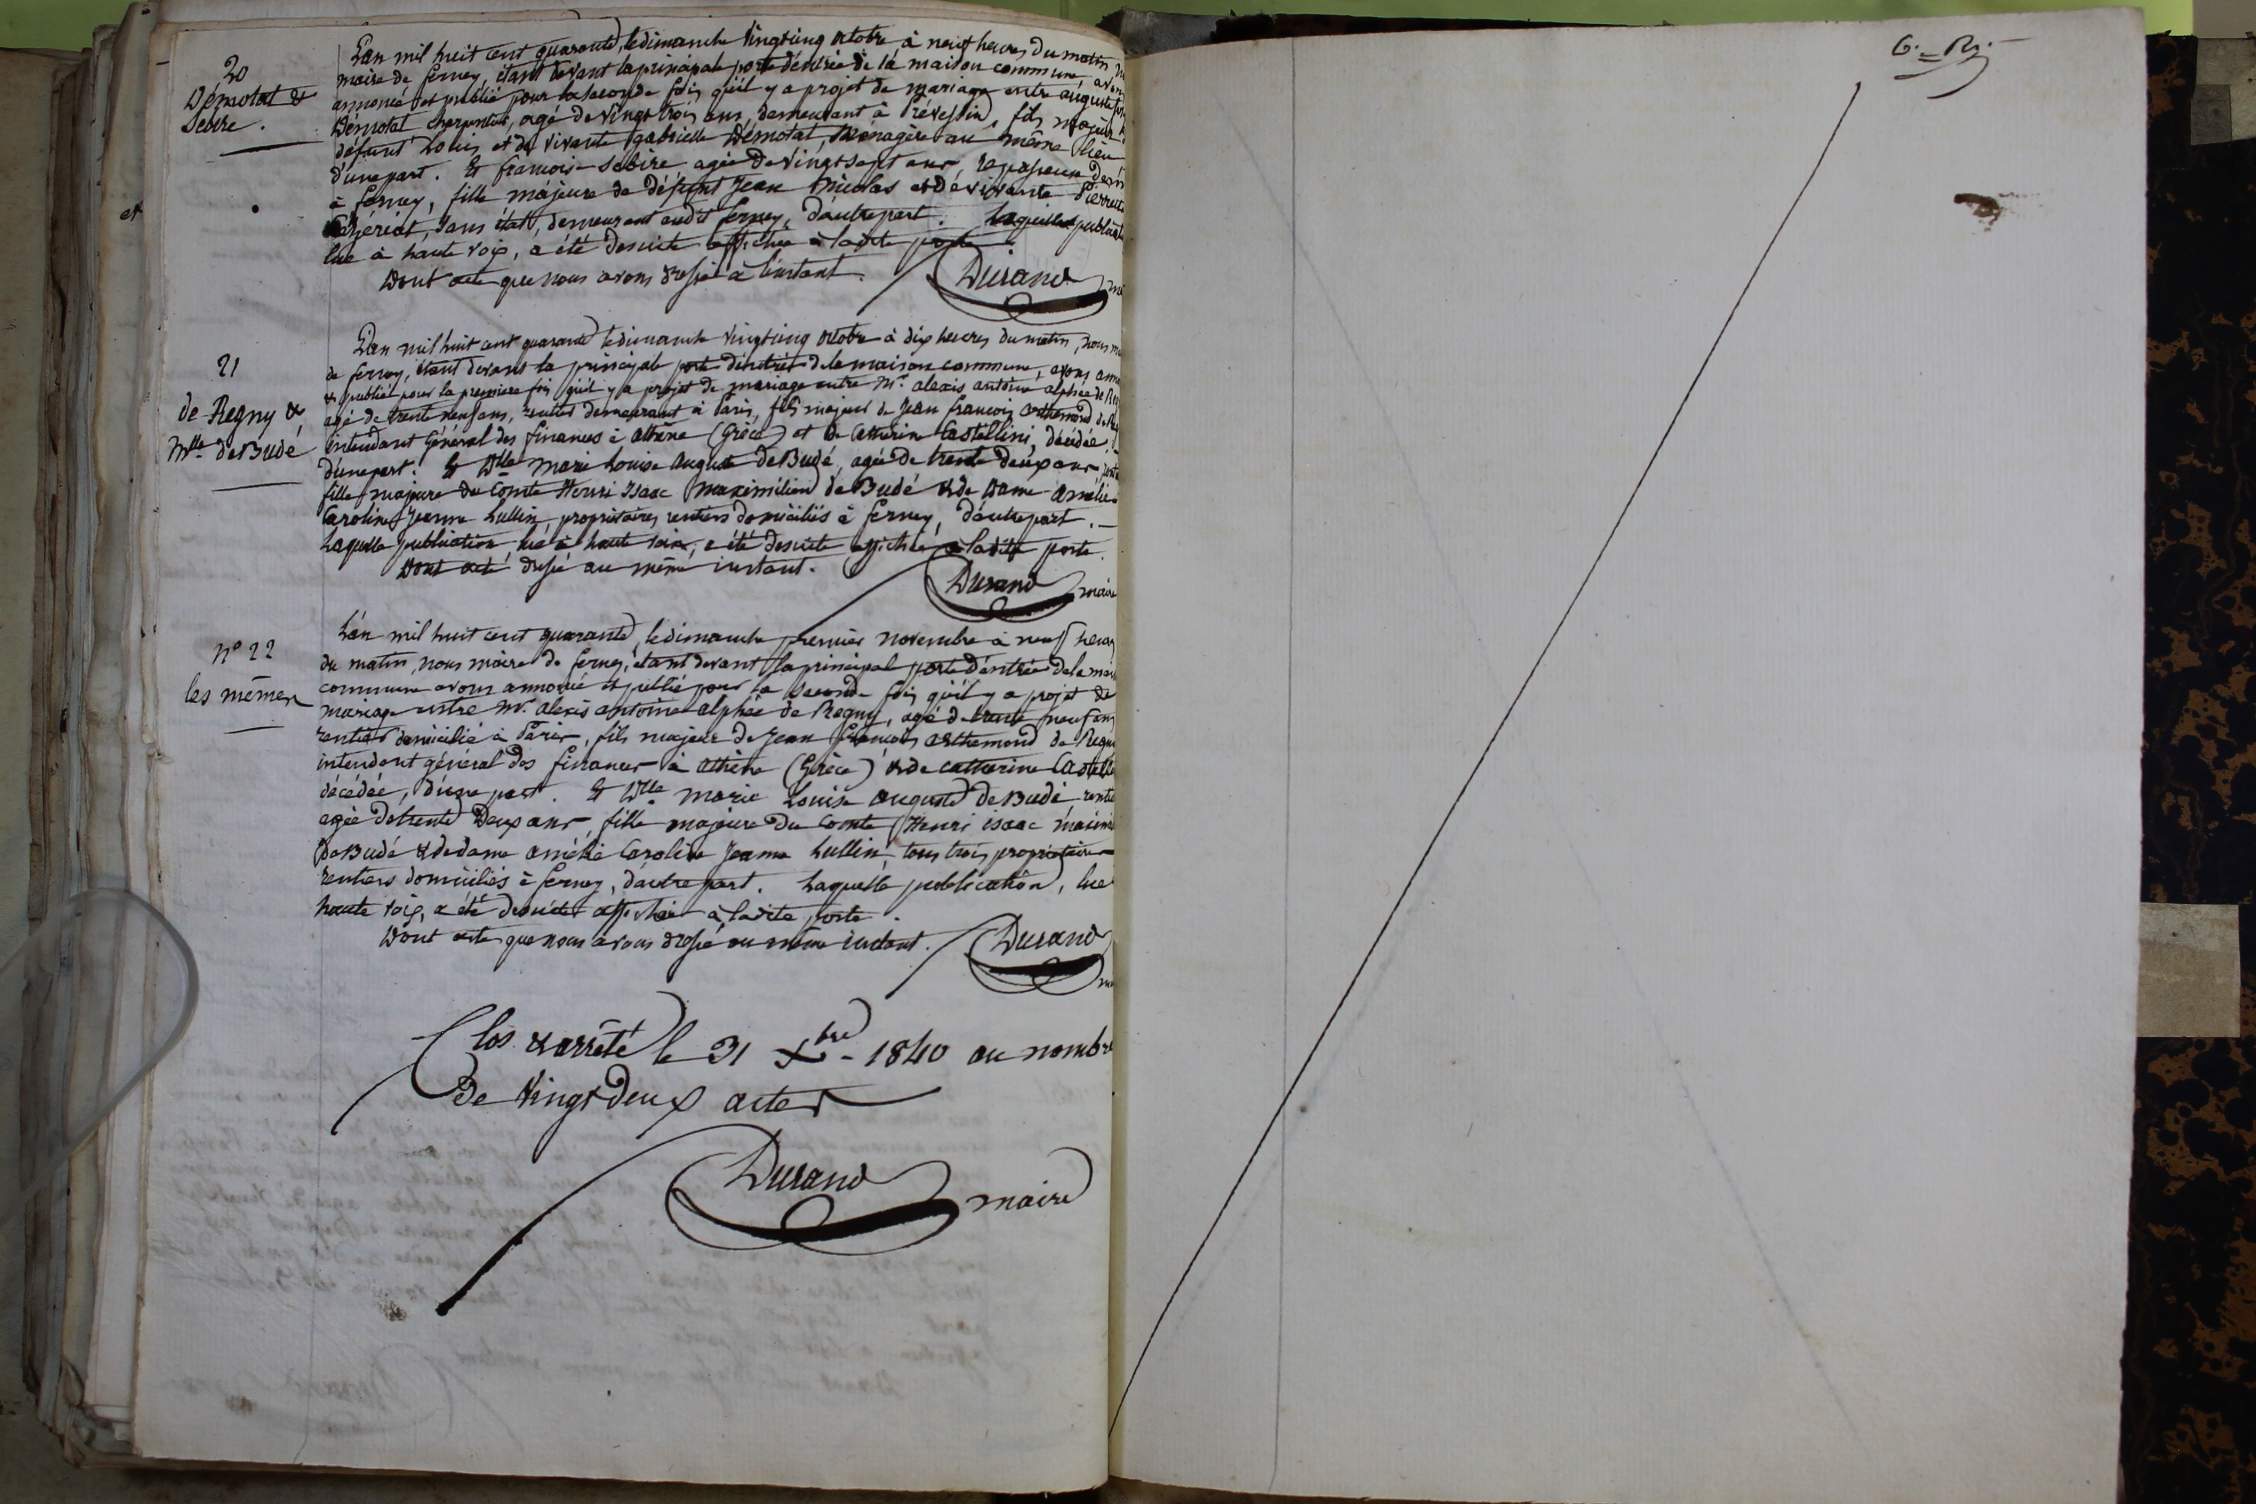 20
Démotat &
Sebire.
L'an mil huit cent quarante, le dimanche vingt cinq octobre à neuf heures du matin,
maire de ferney, étant devant la principale porte d'entrée de la maison commune, avons
annoncé et publié pour la seconde fois qu'il y a projet de mariage entre auguste
Démotat charpentier, agé de vingt trois ans, demeurant à Prévessin, fils majeur
défunt Louis et de vivante gabrielle Démotat, ménagère au même lieu
d'une part. Et françoise Sebire agée de vingt sept ans, repasseuse
à ferney, fille majeure de défunt Jean Nicolas et de vivante Pierrette
sans état, demeurant audit ferney, d'autre part. Laquelle
lue à haute voix, a été de suite affichée à ladite porte.
Dont acte que nous avons dressé à l'instant.
Durand
21
de Regny &
Mlle de Budé
L'an mil huit cent quarante le dimanche vingt cinq octobre à dix heures du matin, nous
de ferney, étant devant la principale porte d'entrée de la maison commune, avons
& publié pour la premiere fois qu'il y a projet de mariage entre Mr. alexis antoine alphée de
agé de trente neuf ans, rentier demeurant à Paris, fils majeur de Jean françois arthemond de
intendant Général des finances à Athène (Grèce) et de Catherine Castellini, décédée,
d'une part. Et Dlle marie Louise Auguste de Budé, agée de trente deux ans,
fille majeure du Comte Henri Isaac Maximilien de Budé & de Dame Amélie
Caroline Jeanne Lullin, propriétaires rentiers domiciliés à ferney, d'autre part.
Laquelle publication, lue à haute voix, a été de suite affichée à ladite porte.
Dont acte dressé au même instant.
Durand maire
n° 22
les mêmes
L'an mil huit cent quarante, le dimanche premier novembre à neuf heures
du matin, nous maire de ferney, étant devant la principal porte d'entrée de la
commune avons annoncé et publié pour la seconde fois qu'il y a projet de
mariage entre Mr. alexis antoine alphée de Regny, agé de trente neuf ans
rentier domicilié à Paris, fils majeur de Jean françois arthemond de Regny
intendant général des finances à Athène (Grèce) & de Catherine
décédée, d'une part. Et Dlle Marie Louise Auguste de Budé,
agée de trente deux ans, fille majeure du Comte Henri isaac
de Budé & de dame amélie Caroline Jeanne Lullin, tous trois propriétaires
rentiers domiciliés à ferney, d'autre part. Laquelle publication, lue
haute voix, a été de suite affichée à ladite porte.
Dont acte que nous avons dressé au même instant.
Durand
Clos & arrêté le 31 Xbre 1840 au nombre
De vingt deux actes
Durand maire
et